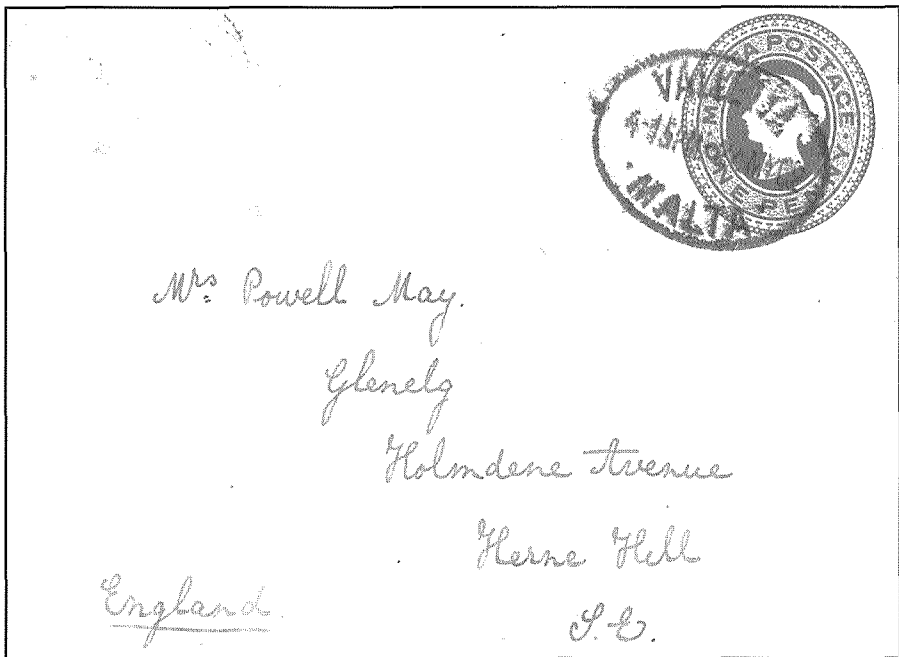 MALTA POSTAGE
ONE PENNY
VALLETTA
MALTA
Mrs Powell May.
Glenelg
Holmdene Avenue
Herne Hill
England.
S.E.